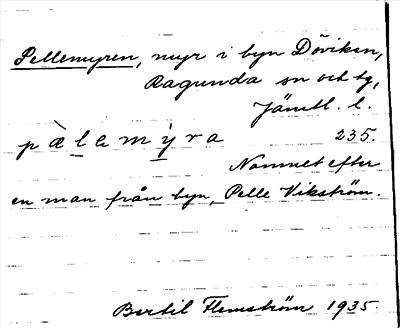 Pellemyren, myr i byn Döviken,
Ragunda sn och tg,
Jämtl. l.
pàlemy̆ra 235.
Namnet efter
en man från byn, Pelle Vikström.
Bertil Flemström 1935.